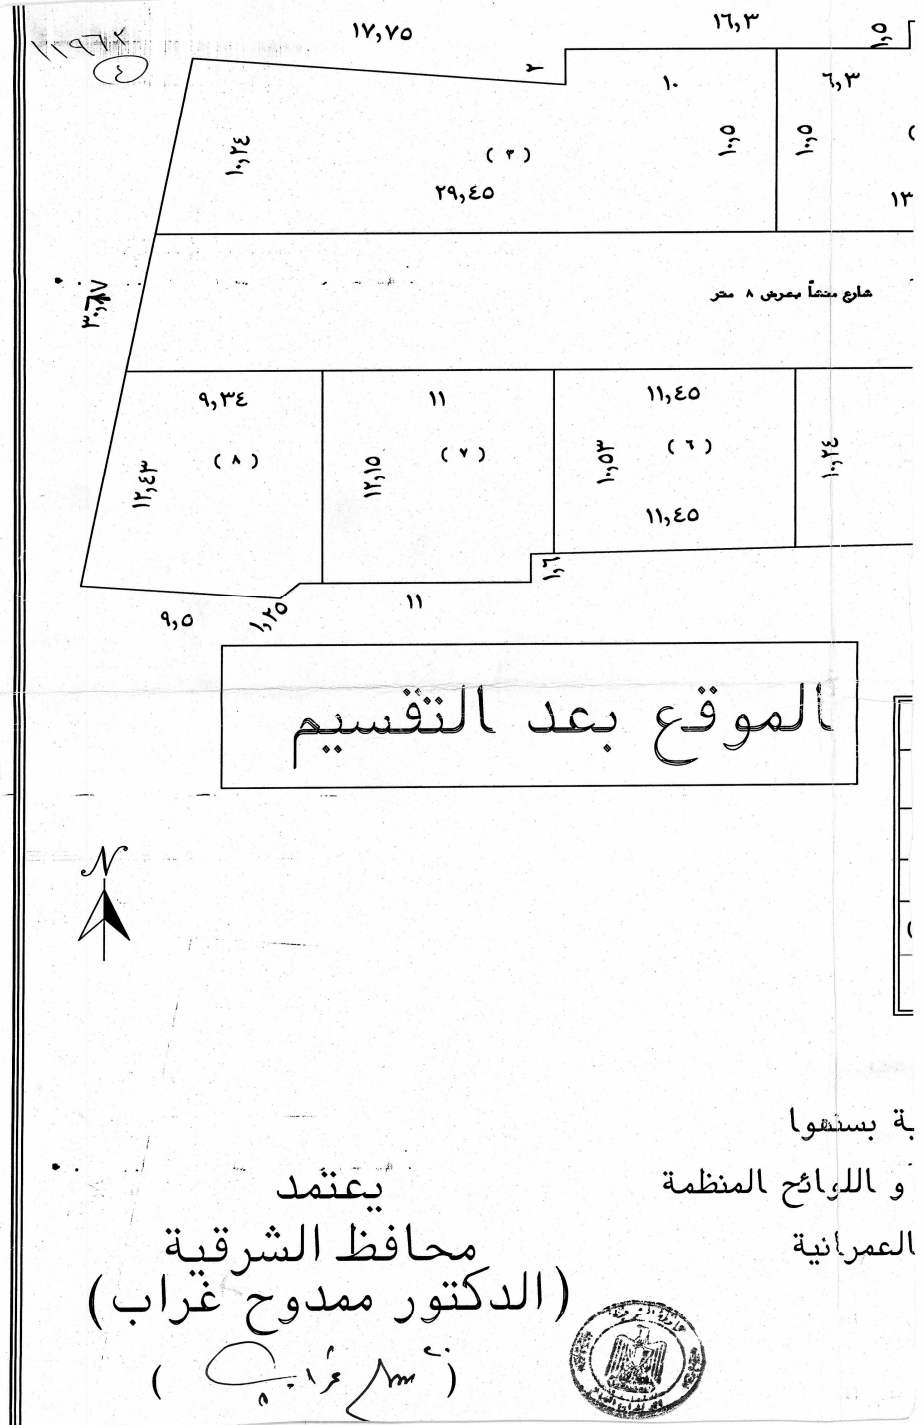 ١١٩٦٢
٤
١٧,٧٥
١٦,٣
١,٥
٢
١٠
٦,٣
١٠,٢٤
( ٣ )
١٠,٥
١٠,٥
٢٩,٤٥
١٣
شارع منشأ بعرض ٨ متر
٩,٣٤
١١
١١,٤٥
١٢,٤٣
( ٨ )
١٢,١٥
( ٧ )
١٠,٥٣
( ٦ )
١٠,٢٤
١١,٤٥
١,٦
٩,٥
١,٢٥
١١
الموقع بعد التقسيم
N
ية بسنهوا
و اللوائح المنظمة
العمرانية
يعتمد
محافظ الشرقية
(الدكتور ممدوح غراب)